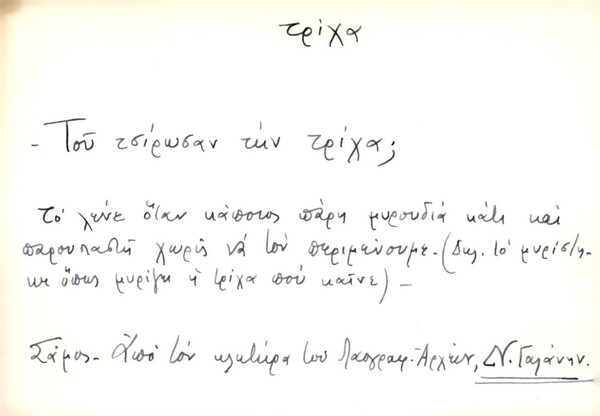 τρίχα
- Τοῦ τσίρωσαν τήν τρίχα;
Τό λένε ὅταν κάποιος πάρη μυρουδιά κάτι καί
παρουσιαστῆ χωρίς νά τόν περιμένουμε. (Δηλ. τό μυρίστη-
κε ὅπως μυρίζει ἡ τρίχα πού καῖνε) -
Σάμος - Ἀπό τόν κλητήρα τοῦ Λαογραφ. Ἀρχείου, Δ.Ν. Γαλάνην.